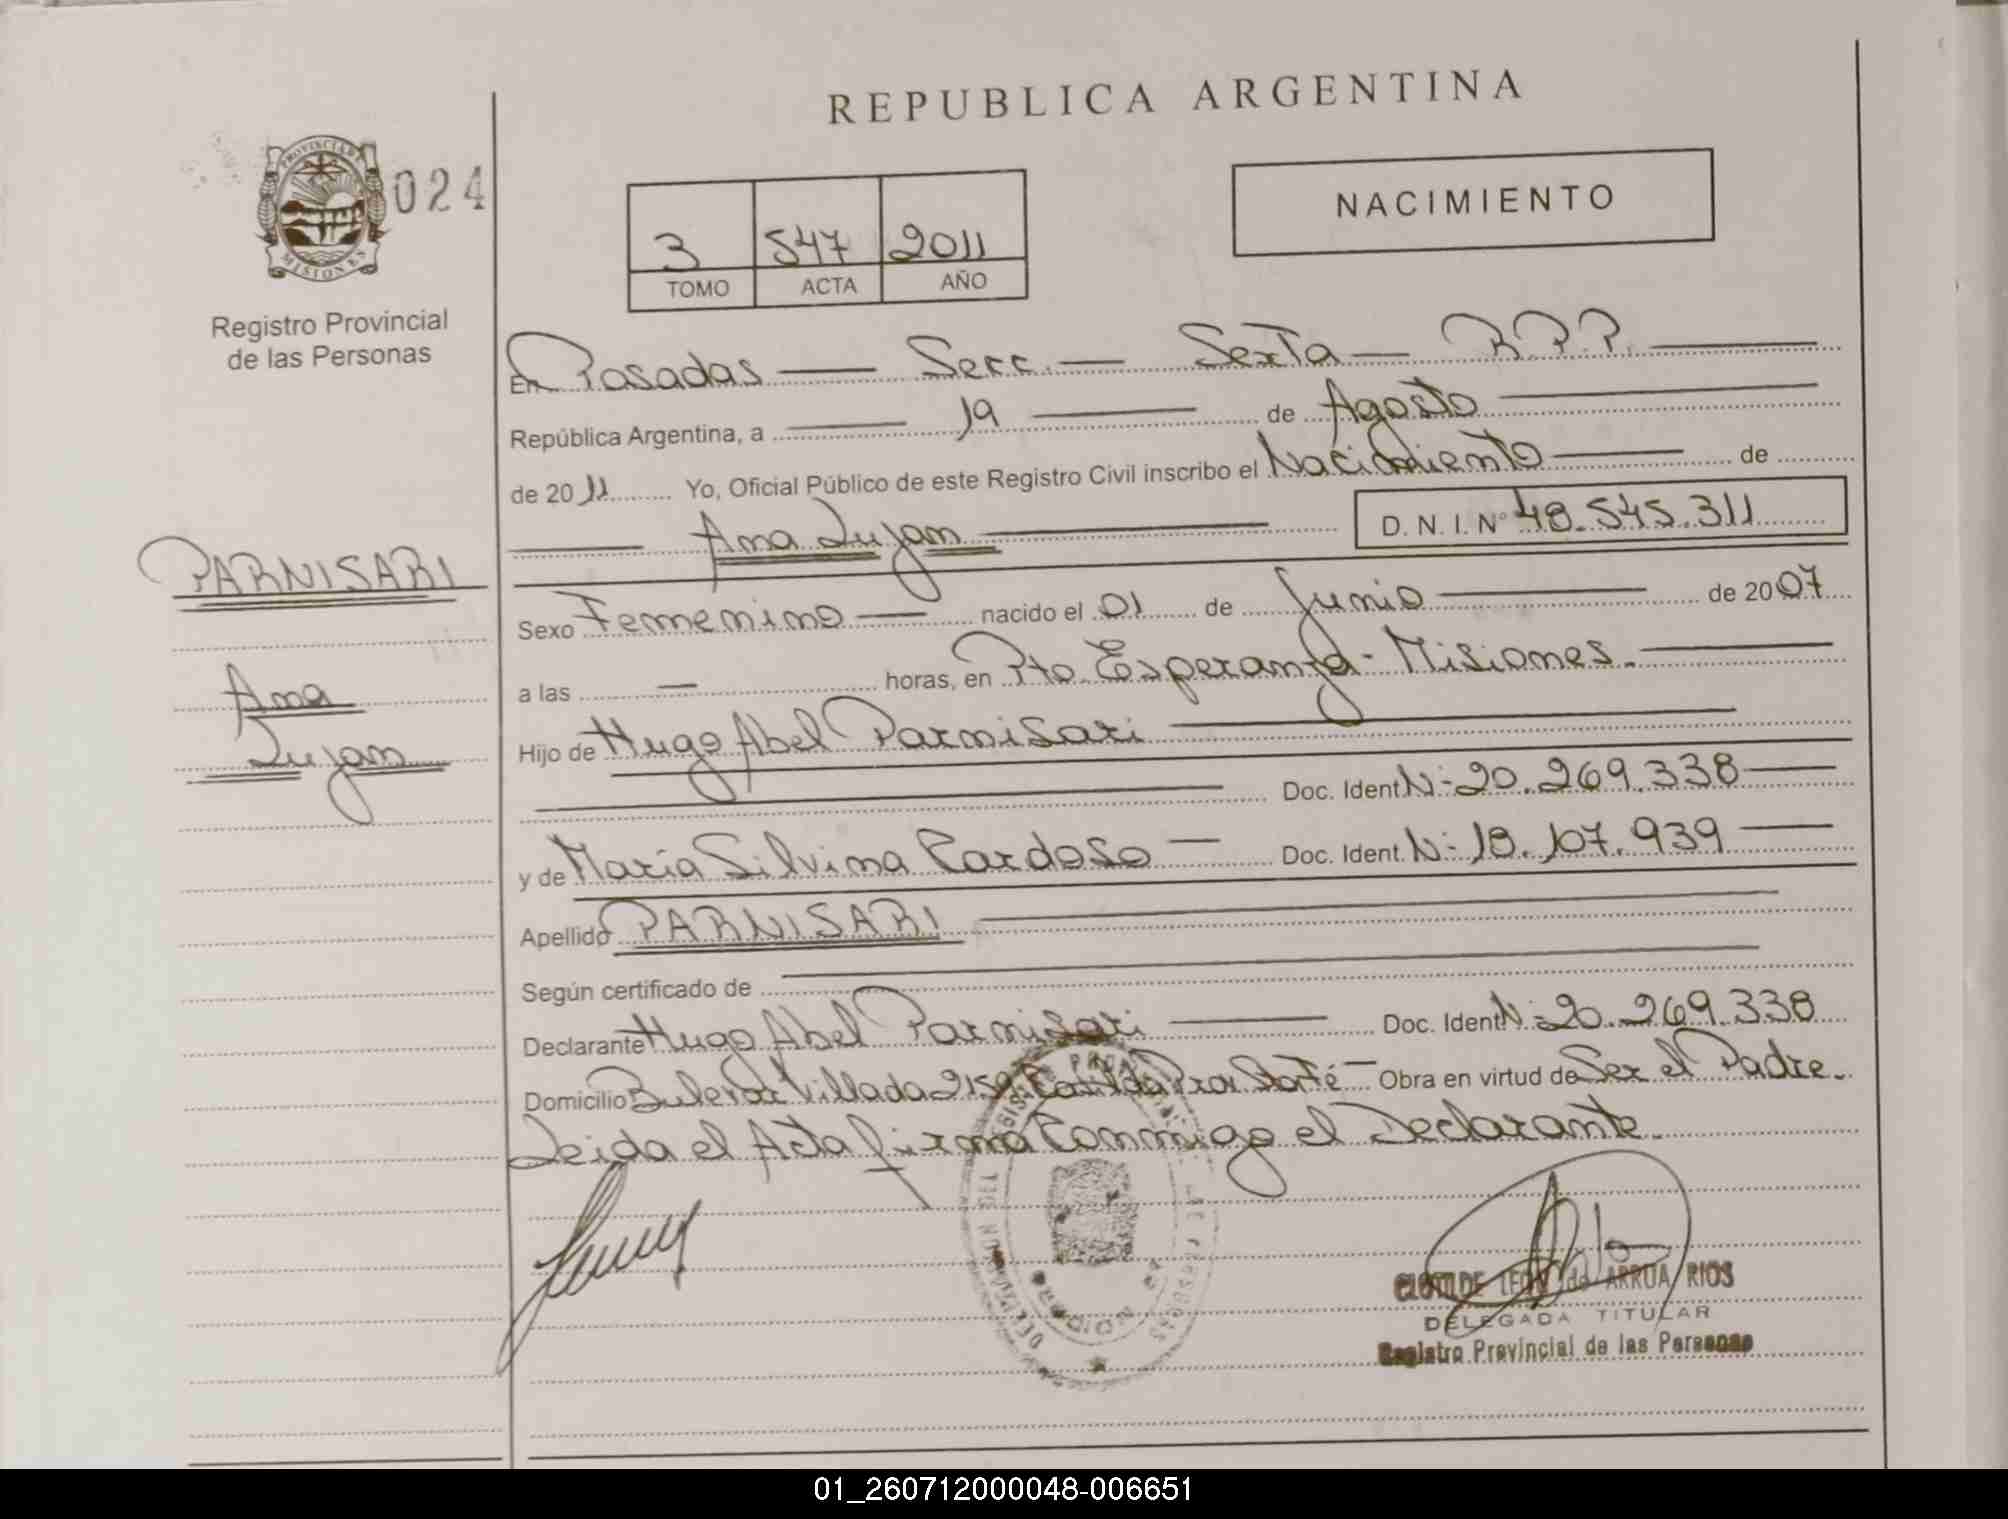 REPUBLICA ARGENTINA
PROVINCIA DE
MISIONES
024
Registro Provincial
de las Personas
3 547 2011
TOMO ACTA AÑO
NACIMIENTO
En Posadas — Secc. — Sexta — R.P.P.
República Argentina, a 19 de Agosto
de 2011 Yo, Oficial Público de este Registro Civil inscribo el Nacimiento — de
Ana Lujan D. N. I. N° 48.545.311
PARNISARI
Ana
Lujan
Sexo Femenino — nacido el 01 de Junio de 2007
a las — horas, en Pto. Esperanza - Misiones.
Hijo de Hugo Abel Parnisari
Doc. Ident N: 20.269.338
y de María Silvina Cardoso — Doc. Ident. N: 18.107.939
Apellido PARNISARI
Según certificado de
Declarante Hugo Abel Parnisari Doc. Ident N: 20.269.338
Domicilio Bulevar Villada 2159 Casilda Obra en virtud de Ser el Padre.
Leida el Acta firma Conmigo el Declarante.
CLOTILDE LEON de ARRUA RIOS
DELEGADA TITULAR
Registro Provincial de las Personas
01_260712000048-006651